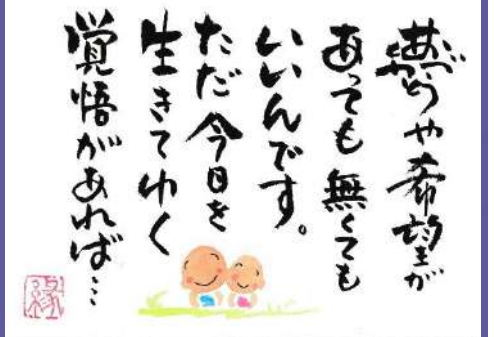 夢や希望が
あっても無くても
いいんです。
ただ今日を
生きてゆく
覚悟があれば…
縁